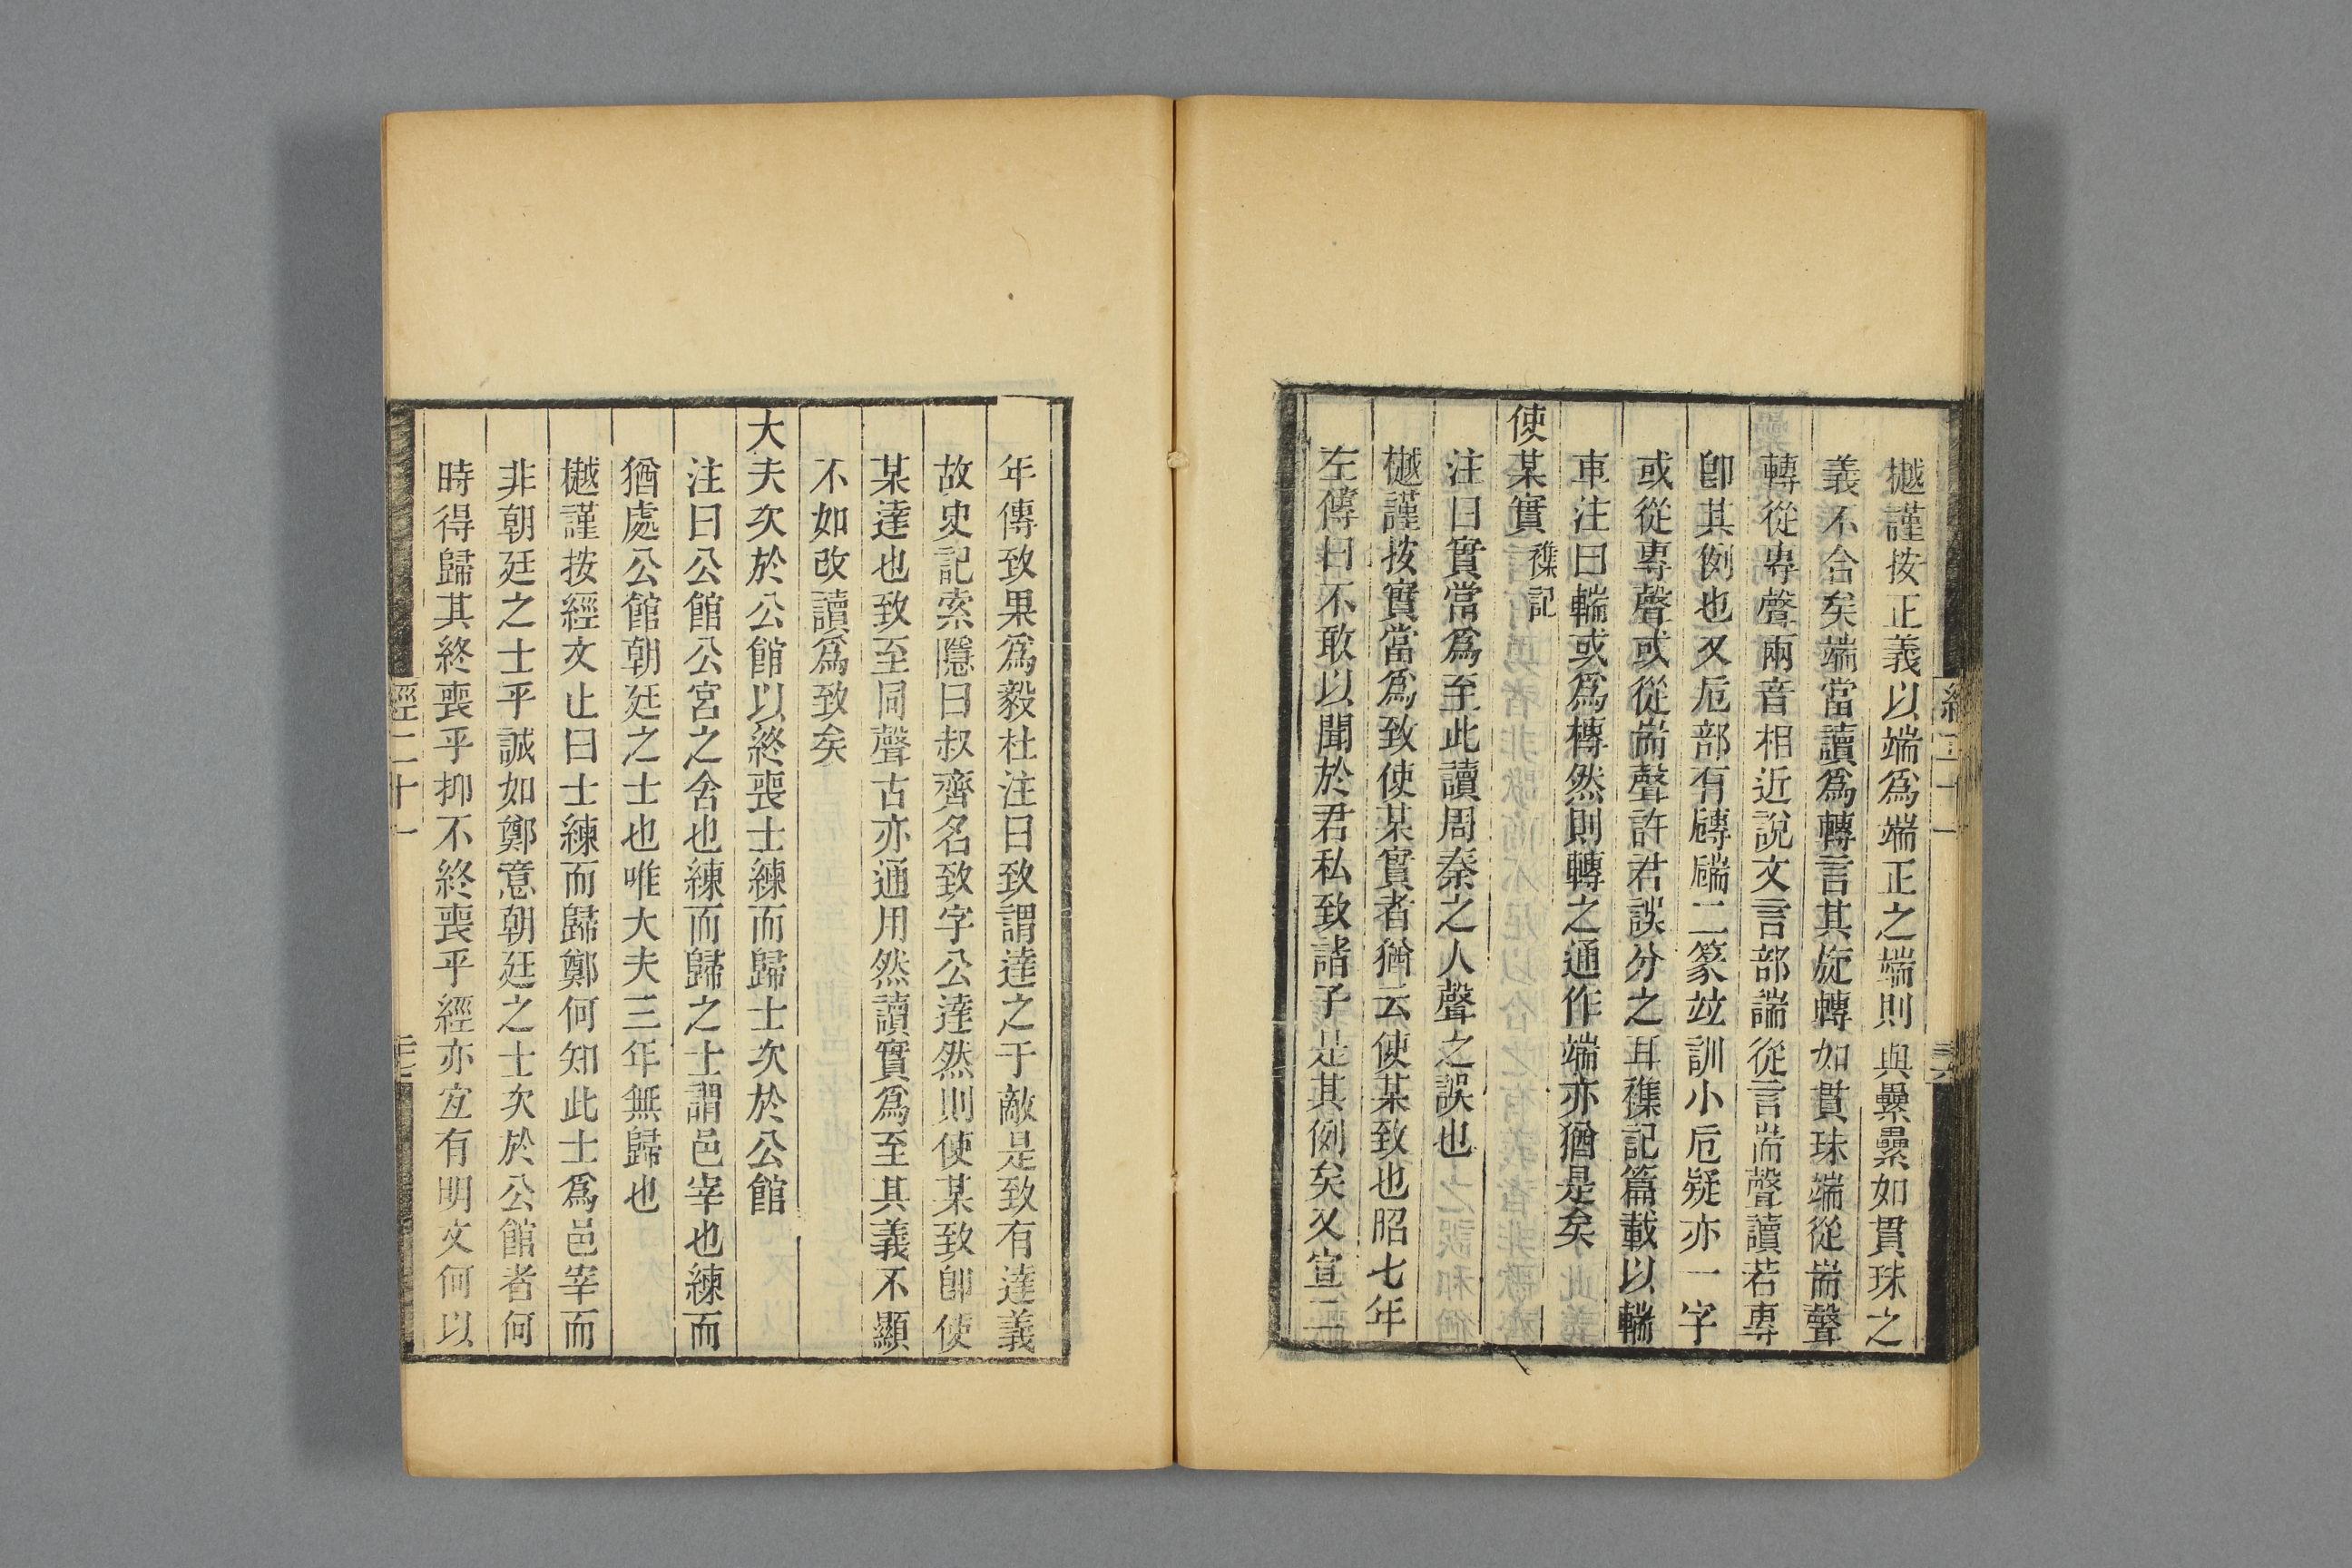 樾謹按正義以端爲端正之端則與纍纍如貫珠之
義不合矣端當讀爲轉言其旋轉如貫珠端從耑聲
轉從專聲兩音相近說文言部諯從言耑聲讀若專
卽其例也又卮部有𡭐𡭀二篆竝訓小卮疑亦一字
或從專聲或從耑聲許君誤分之耳襍記篇載以輲
車注曰輲或爲槫然則轉之通作端亦猶是矣
使某實 襍記
注曰實當爲至此讀周秦之人聲之誤也
樾謹按實當爲致使某實者猶云使某致也昭七年
左傳曰不敢以聞於君私致諸子是其例矣又宣二
年傳致果爲毅杜注曰致謂達之于敵是致有達義
故史記索隱曰叔齊名致字公達然則使某致卽使
某達也致至同聲古亦通用然讀實爲至其義不顯
不如改讀爲致矣
大夫次於公館以終喪士練而歸士次於公館
注曰公館公宮之舍也練而歸之士謂邑宰也練而
猶處公館朝廷之士也唯大夫三年無歸也
樾謹按經文止曰士練而歸鄭何知此士爲邑宰而
非朝廷之士乎誠如鄭意朝廷之士次於公館者何
時得歸其終喪乎抑不終喪乎經亦宜有明文何以
經二十一